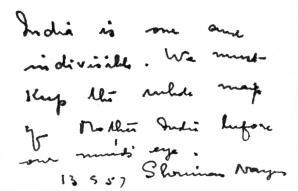 India is one and
indivisible. We must
keep the whole map
of Mother India before
our mind's eye.
13 5 57 Shriman Narayan